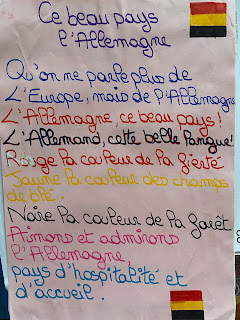 Ce beau pays
l'Allemagne
Qu'on ne parle plus de
L'Europe, mais de l'Allemagne
L'Allemagne, ce beau pays!
L'Allemand, cette belle langue!
Rouge la couleur de la fierté
Jaune la couleur des champs
de blé.
Noire la couleur de la forêt
Aimons et admirons
l'Allemagne,
pays d'hospitalité et
d'accueil.